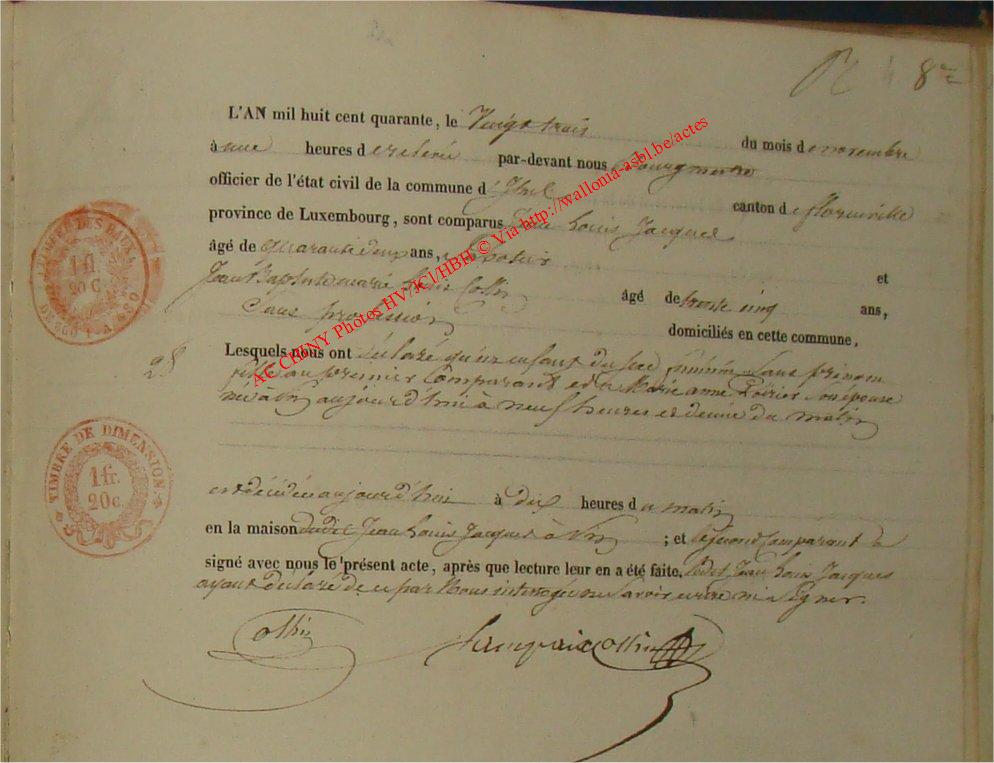 8me
L'AN mil huit cent quarante, le Vingt trois du mois de novembre
à une heures de relevée par-devant nous Bourgmestre
officier de l'état civil de la commune d'Izel canton de florenville
province de Luxembourg, sont comparus Jean Louis Jacques
âgé de quarante deux ans, et
Jean Baptiste marie Collin âgé de trente cinq ans,
Sans profession domiciliés en cette commune,
28 Lesquels nous ont déclaré qu'un enfant du sexe féminin Sans prénom
fille au premier Comparant et a Marie anne Poirier Son épouse
né à aujourd'hui à neuf heures et demie du matin
est décédée aujourd'hui à dix heures du matin
en la maison dudit Jean Louis Jacques à ; et le second Comparant a
signé avec nous le présent acte, après que lecture leur en a été faite. ledit Jean Louis Jacques
ayant déclaré de ce par Nous interrogé ne Savoir écrire ni Signer.
Collin françois Collin
TIMBRE DE DIMENSION
1 fr.
20 c.
1 fl
20 C.
ACCHINY Photos HV/JCI/HBH © Via http://wallonia-asbl.be/actes